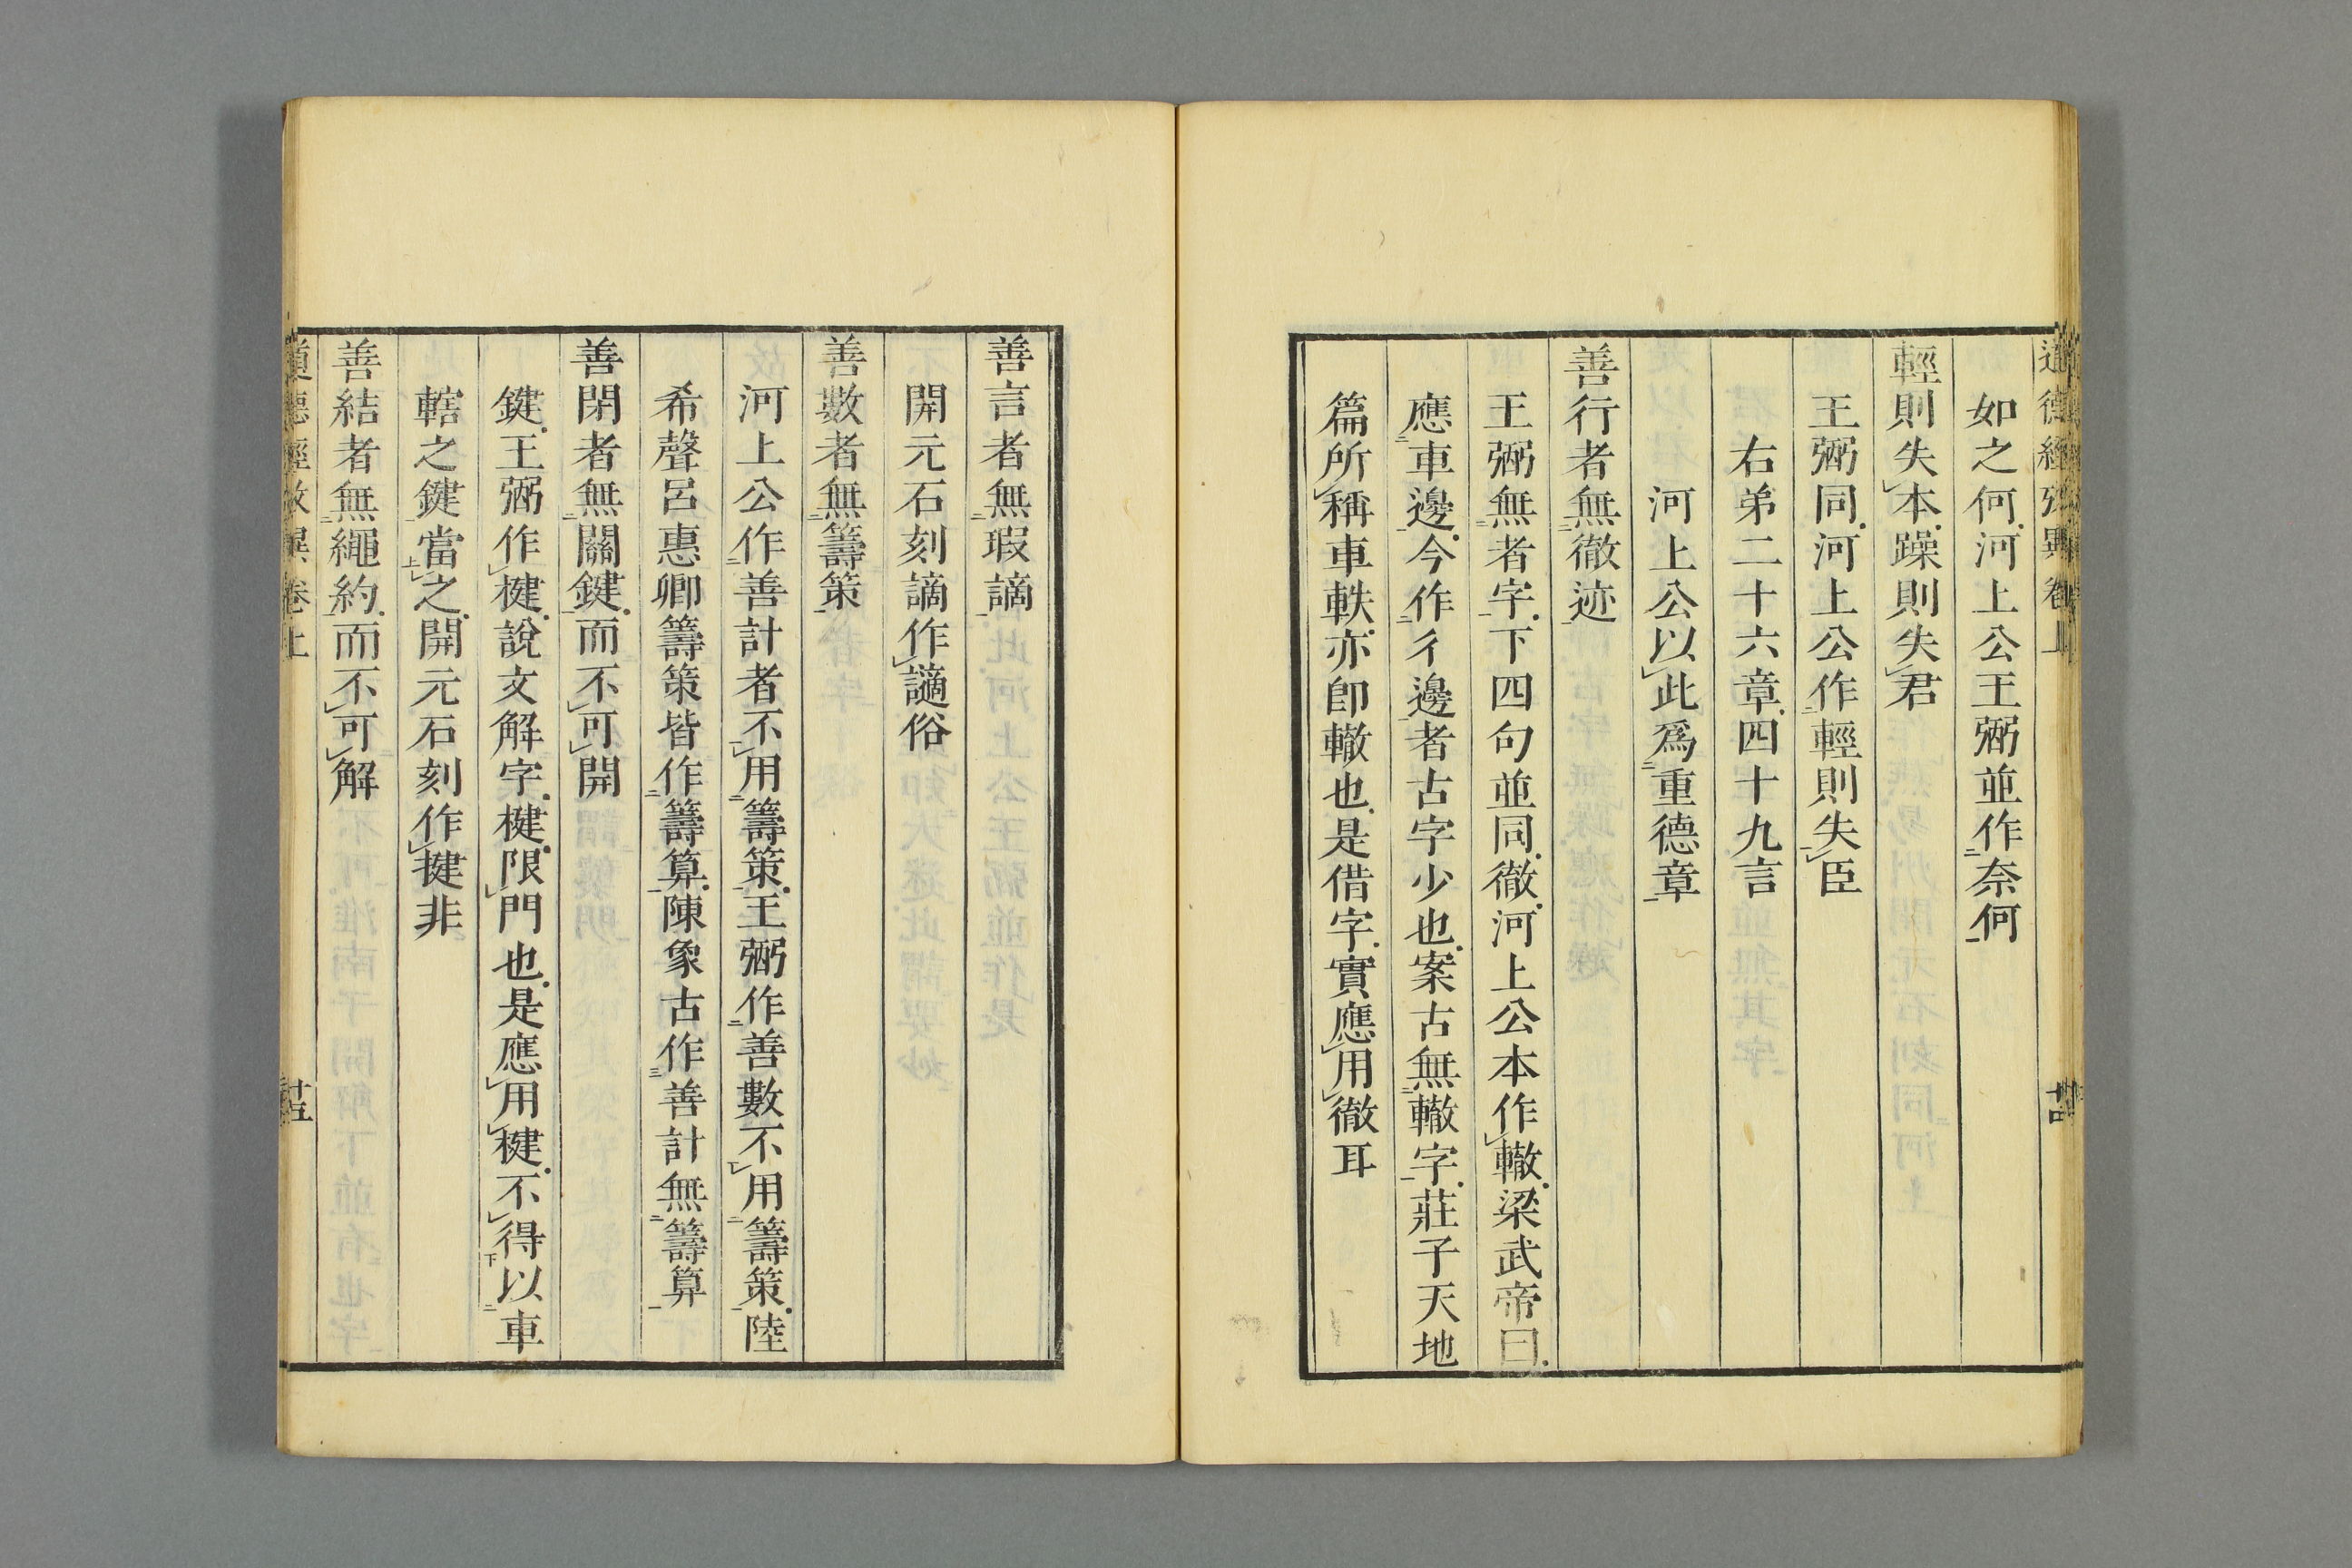 道德經攷異卷上 十四
如之何河上公王弼並作奈何
輕則失本躁則失君
王弼同河上公作輕則失臣
右弟二十六章四十九言
河上公以此爲重德章
善行者無徹迹
王弼無者字下四句並同徹河上公本作轍梁武帝曰
應車邊今作彳邊者古字少也案古無轍字莊子天地
篇所稱車軼亦卽轍也是借字實應用徹耳
善言者無瑕謫
開元石刻謫作讁俗
善數者無籌策
河上公作善計者不用籌策王弼作善數不用籌策陸
希聲呂惠卿籌策皆作籌算陳象古作善計無籌算
善閉者無關鍵而不可開
鍵王弼作楗說文解字楗限門也是應用楗不得以車
轄之鍵當之開元石刻作揵非
善結者無繩約而不可解
道德經攷異卷上 十五